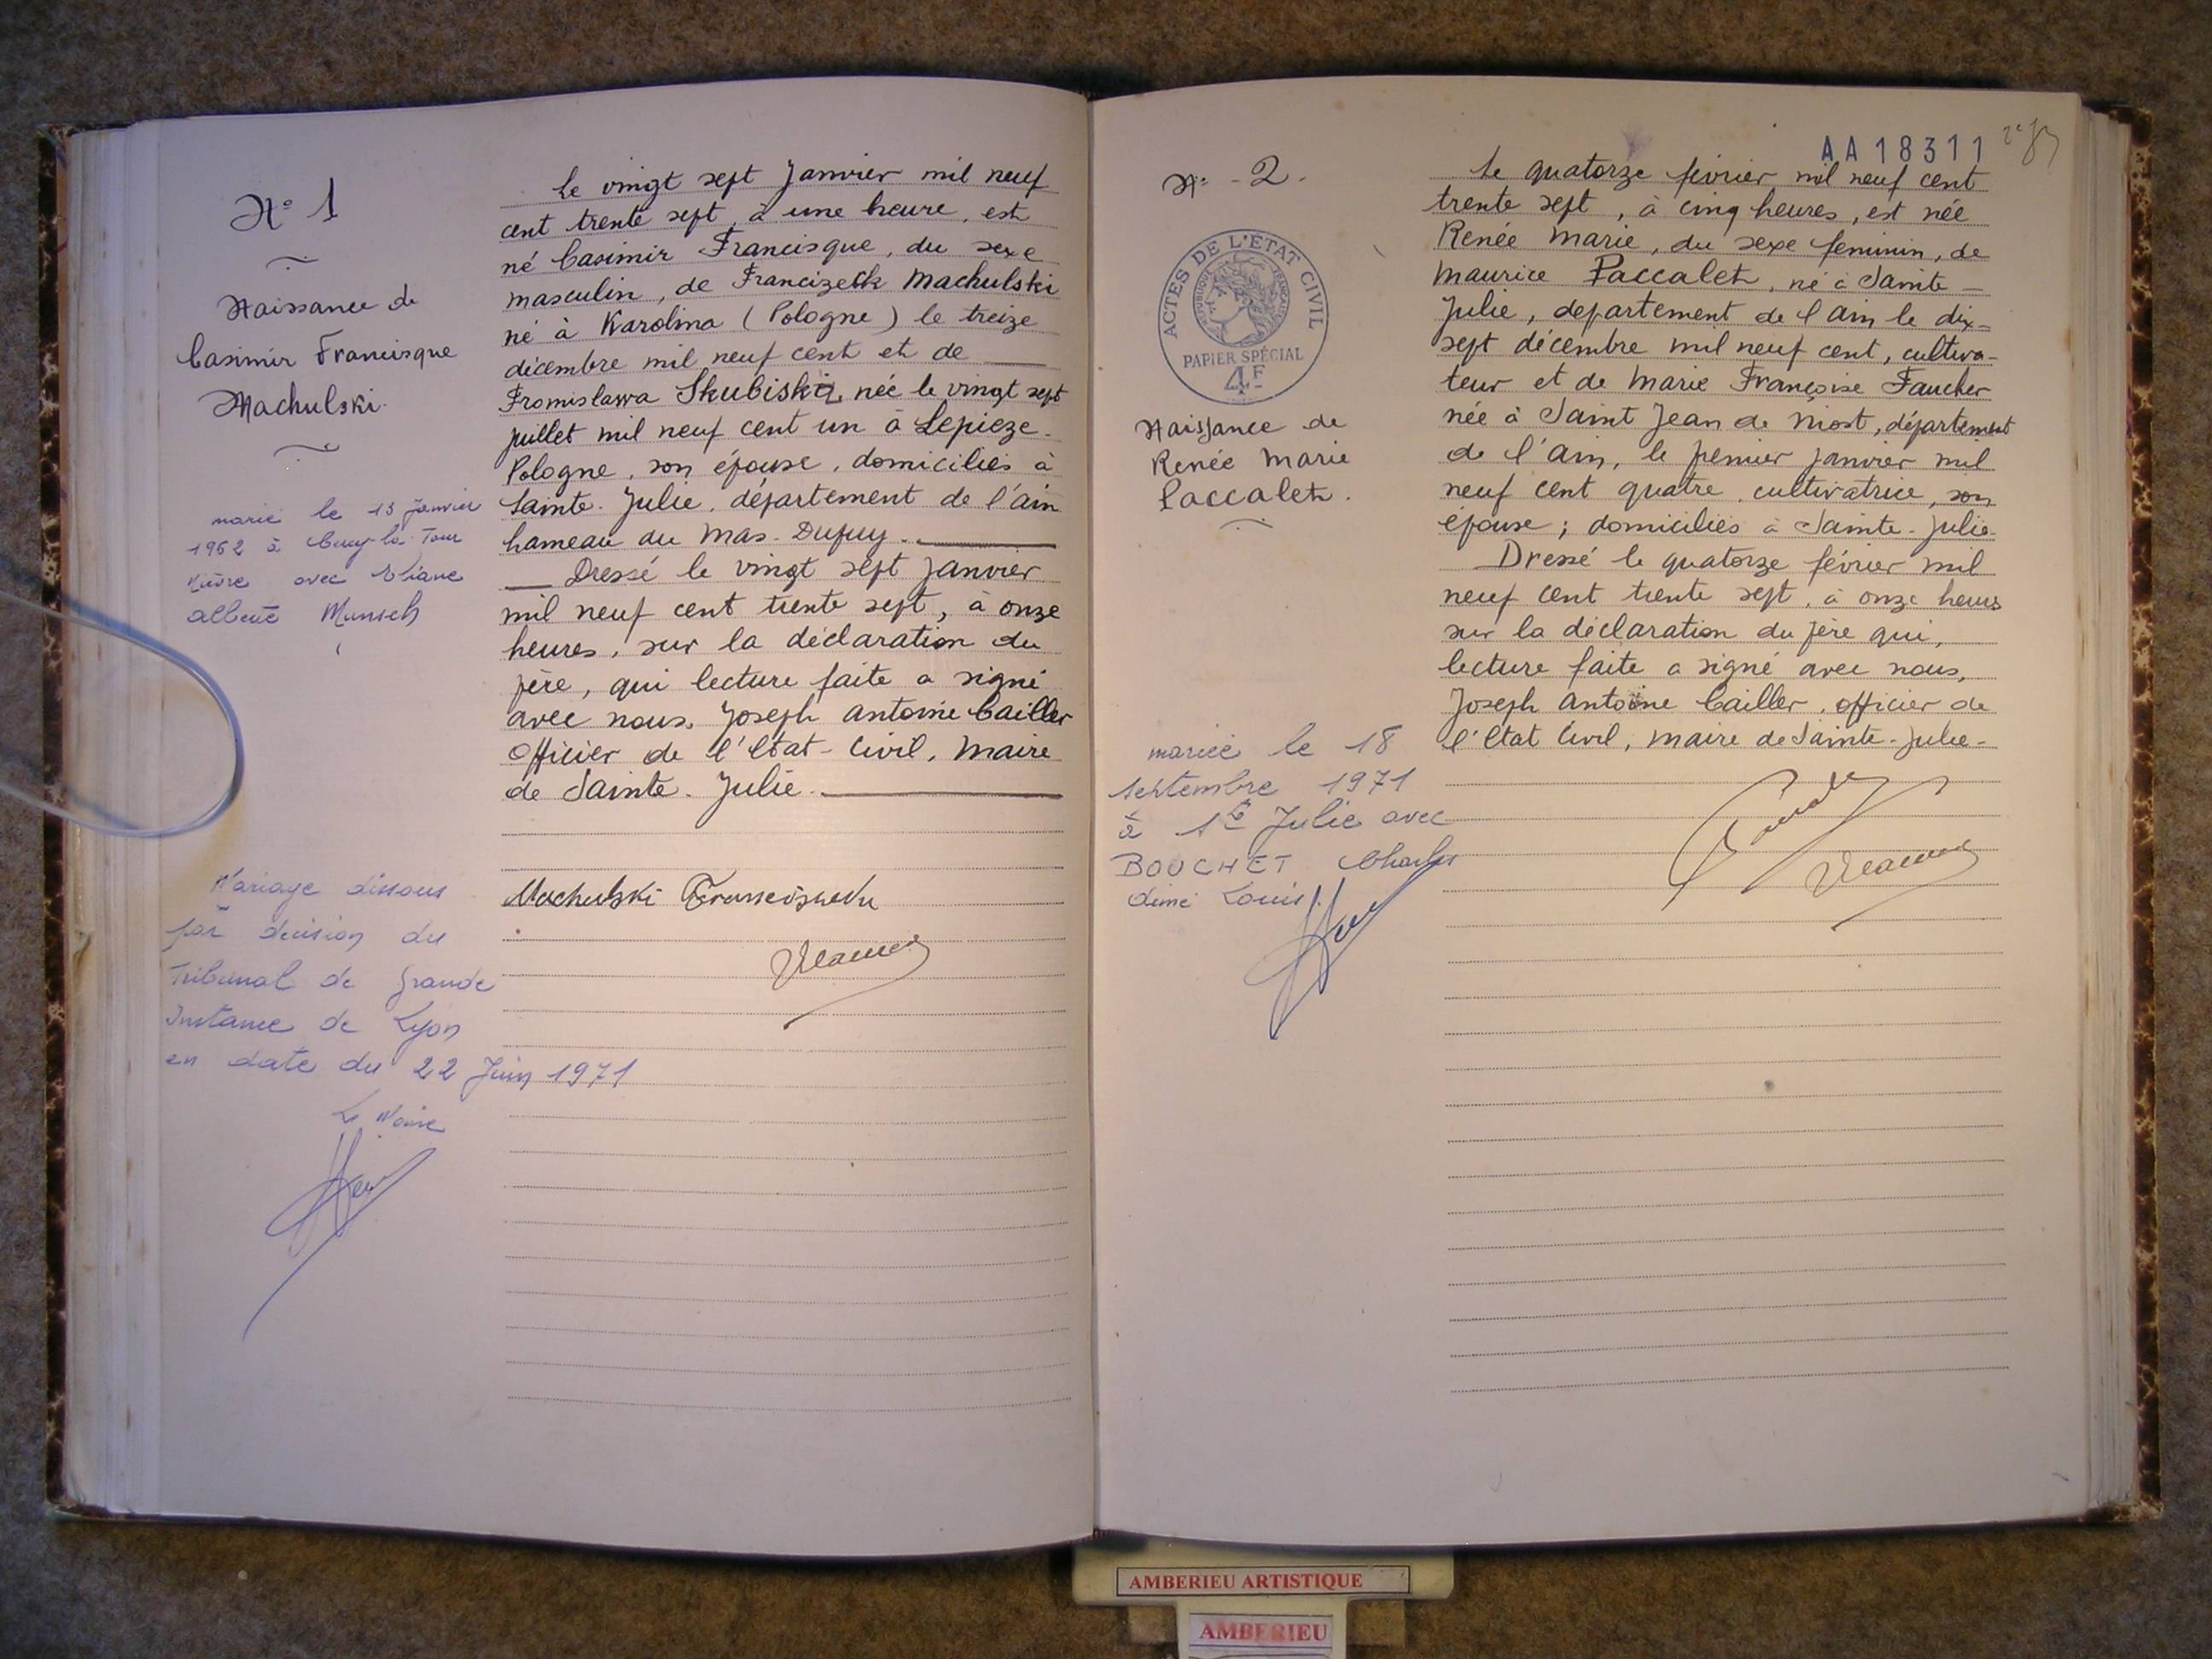 N° 1
Naissance de
Casimir Francisque
Machulski
marié le 13 janvier
1962 à Cercy-la-Tour
Nièvre avec Eliane
Munsch
Mariage dissous
par décision du
Tribunal de Grande
Instance de Lyon
en date du 22 Juin 1971
Le Maire
Le vingt sept Janvier mil neuf
cent trente sept, à une heure, est
né Casimir Francisque, du sexe
masculin, de Francizeck Machulski
né à Karolina (Pologne) le treize
décembre mil neuf cent et de
Fromislawa Skubiska, née le vingt sept
juillet mil neuf cent un à Lepieze-
Pologne, son épouse, domiciliés à
Sainte-Julie, département de l'ain
hameau du Mas-Dupuy.
Dressé le vingt sept Janvier
mil neuf cent trente sept, à onze
heures, sur la déclaration du
père, qui lecture faite a signé
avec nous, Joseph Antoine Cailler
Officier de l'Etat-Civil, Maire
de Sainte-Julie.
Machulski
N° -2-
ACTES DE L'ETAT CIVIL
REPUBLIQUE FRANÇAISE
PAPIER SPÉCIAL
4F
Naissance de
Renée Marie
Paccalet.
mariée le 18
septembre 1971
à Ste Julie avec
BOUCHET Charles
Aimé Louis.
AA18311
Le quatorze février mil neuf cent
trente sept, à cinq heures, est née
Renée Marie, du sexe feminin, de
Maurice Paccalet, né à Sainte-
Julie, departement de l'ain le dix-
sept décembre mil neuf cent, cultiva-
teur et de Marie Françoise Faucher
née à Saint Jean de Niost, département
de l'Ain, le premier janvier mil
neuf cent quatre, cultivatrice, son
épouse; domiciliés à Sainte-Julie.
Dressé le quatorze février mil
neuf cent trente sept, à onze heures
sur la déclaration du père qui,
lecture faite a signé avec nous,
Joseph Antoine Cailler, officier de
l'Etat Civil, maire de Sainte-Julie-
AMBERIEU ARTISTIQUE
AMBERIEU